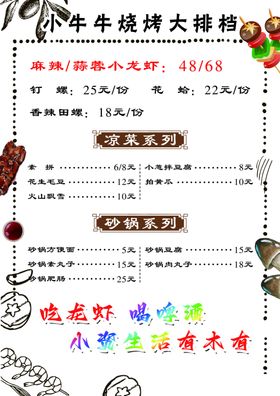 小牛牛烧烤大排档
麻辣/蒜蓉小龙虾: 48/68
钉 螺: 25元/份 花 蛤: 22元/份
香辣田螺: 18元/份
凉菜系列
素 拼 6/8元 小葱拌豆腐 8元
花生毛豆 12元 拍黄瓜 10元
火山飘雪 10元
砂锅系列
砂锅方便面 5元 砂锅豆腐 15元
砂锅素丸子 15元 砂锅肉丸子 18元
砂锅肥肠 25元
吃龙虾 喝啤酒
小资生活有木有